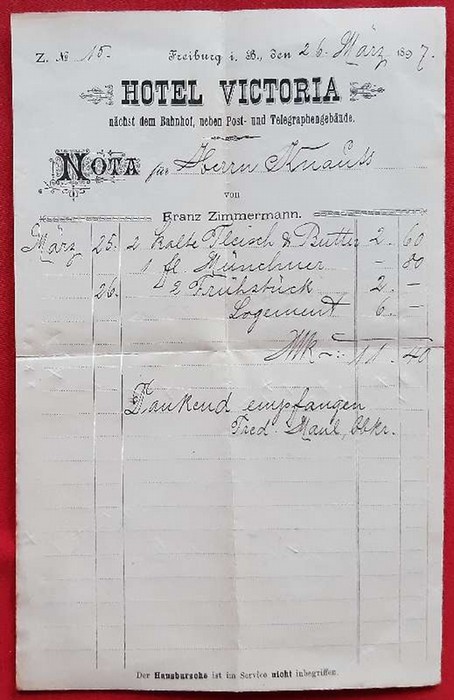 Z. № 15. Freiburg i. B., den 26. März 1897.
HOTEL VICTORIA
nächst dem Bahnhof, neben Post- und Telegraphengebäude.
NOTA für Herrn Knauss
von
Franz Zimmermann.
März 25. 2 kalte Fleisch & Butter 2. 60
1 fl. Münchner - 80
26. 2 Frühstück 2. -
Logement 6. -
Mk 11. 40
Dankend empfangen
Fred. Maul, Obkr.
Der Hausbursche ist im Service nicht inbegriffen.